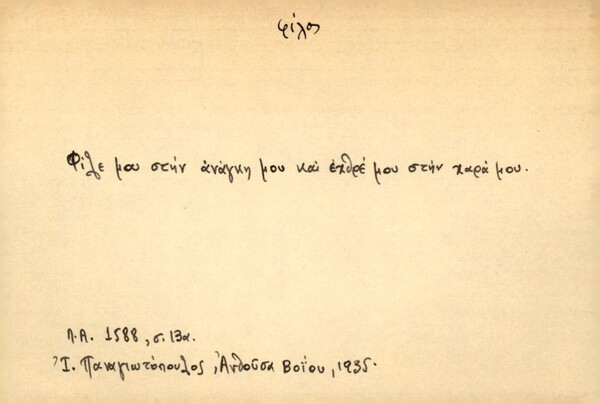 φίλος
Φίλε μου στήν ἀνάγκη μου καί ἐχθρέ μου στήν χαρά μου.
Λ.Α. 1588, σ. 13α.
Ἰ. Παναγιωτόπουλος, Ἀνθοῦσα Βοΐου, 1935.